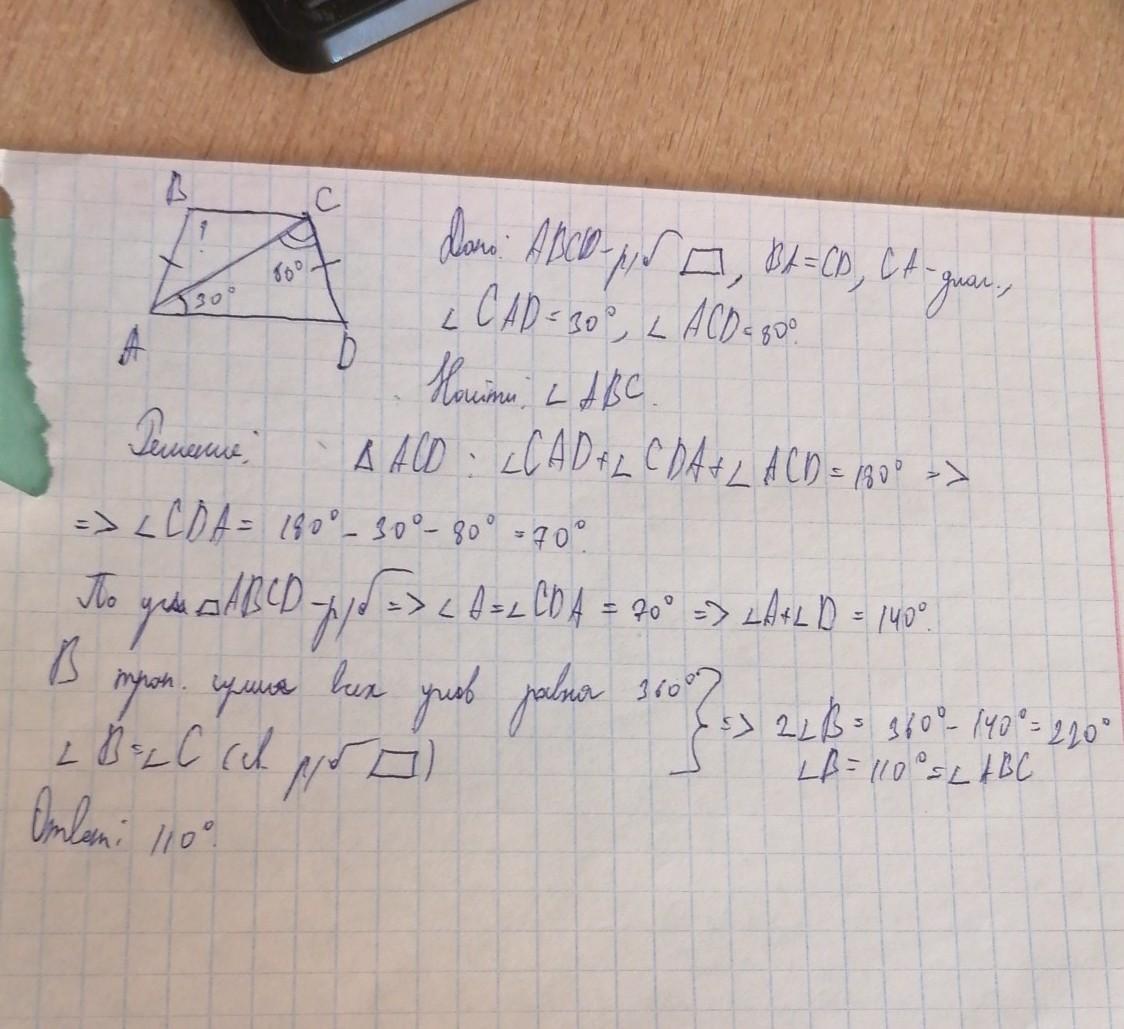 B C
? 80°
30°
A D
Дано: ABCD - р/б ▱, BA = CD, CA - диаг.,
∠ CAD = 30°, ∠ ACD = 80°.
Найти: ∠ ABC.
Решение: Δ ACD : ∠CAD + ∠ CDA + ∠ ACD = 180° =>
=> ∠ CDA = 180° - 30° - 80° = 70°.
По усл. ▱ ABCD - р/б => ∠ A = ∠ CDA = 70° => ∠A + ∠ D = 140°.
В трап. сумма всех углов равна 360° } => 2∠B = 360° - 140° = 220°
∠ B = ∠ C (св р/б ▱) ∠B = 110° = ∠ ABC
Ответ: 110°.